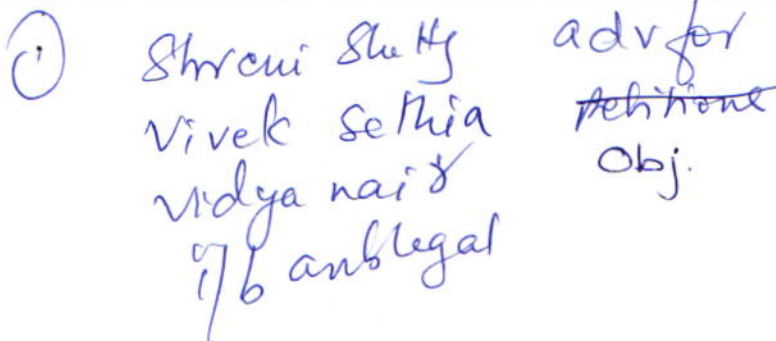 ① Shreni Shetty adv for
Vivek Sethia Petitione
Vidya nair Obj.
i/b anblegal